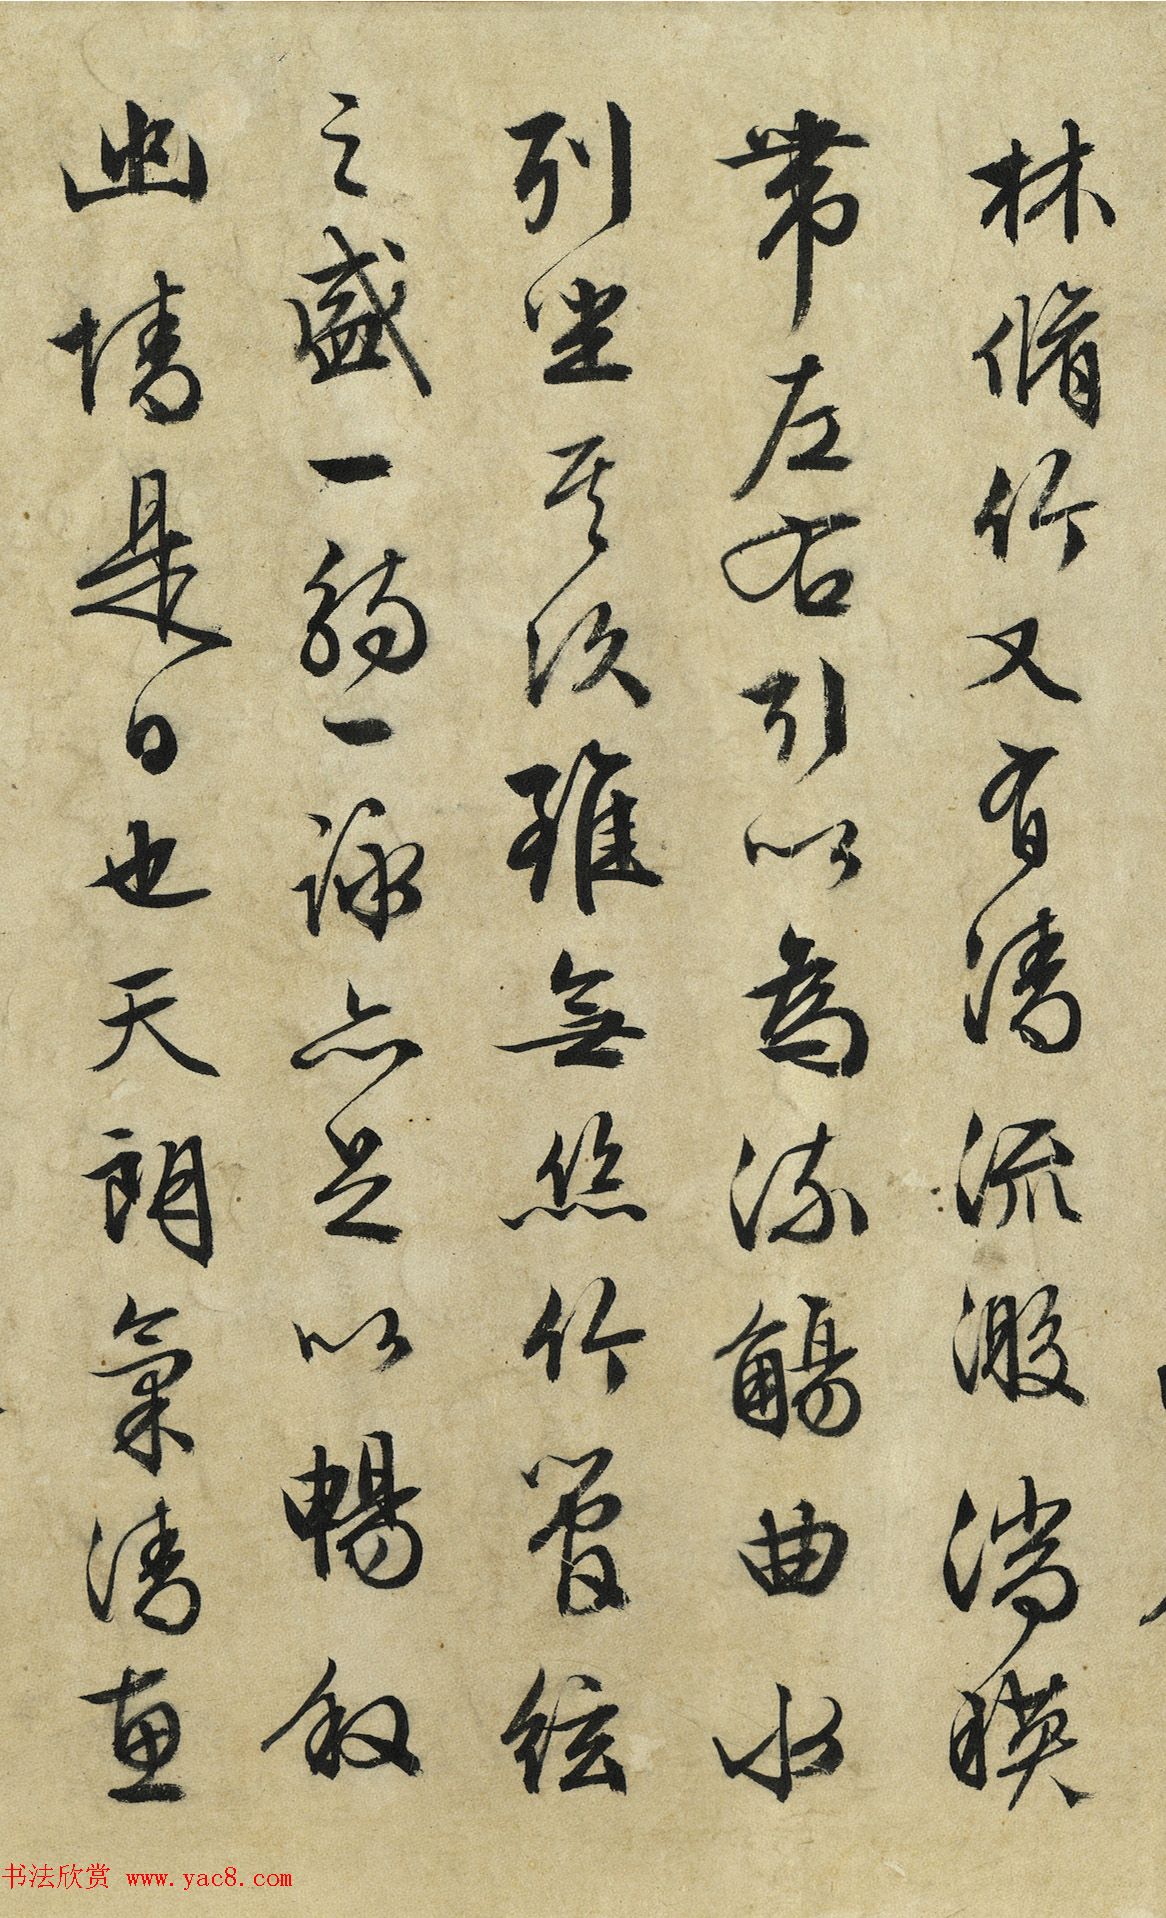 林脩竹又有清流激湍暎
帶左右引以為流觴曲水
列坐其次雖無絲竹管絃
之盛一觴一詠亦足以暢叙
幽情是日也天朗氣清惠
书法欣赏 www.yac8.com